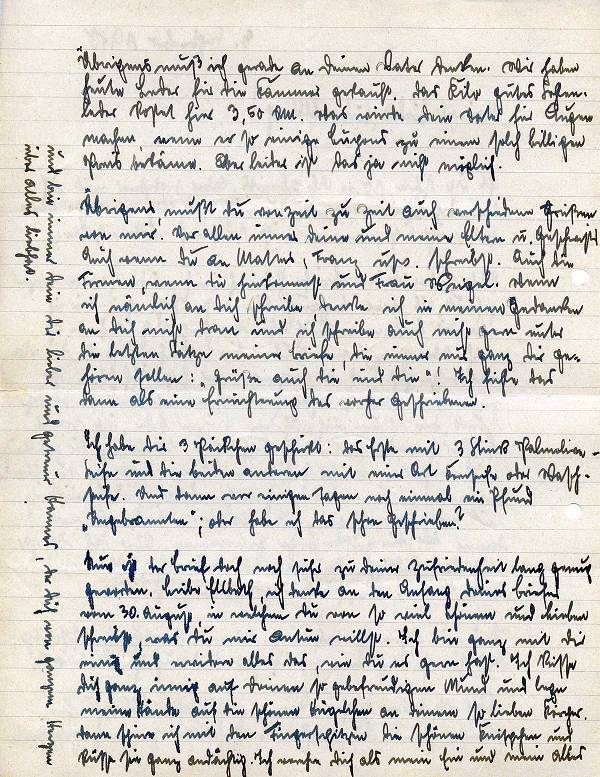 Übrigens muß ich gerade an Deinen Vater denken. Wir haben
heute Leder für die Kammer gekauft. das Kilo gutes Sohlen-
leder kostet hier 3,50 RM. Was würde dein Vater für Augen
machen, wenn er so einige zu einem solch billigen
Preis bekäme. Aber leider ist das ja nicht möglich.
Übrigens mußt du von Zeit zu Zeit auch verschiedene Grüßen
von mir. Vor allem immer deine und meine Eltern u. Geschwister
Auch wenn du an Mattes, Franz usw. schreibst. Auch die
Firmen, wenn du hinkommst und Frau Weigel. Wenn
ich nämlich an dich schreibe, denke ich in meinen Gedanken
an dich nicht dran und ich schreibe auch nicht gern unter
die letzten Sätze meiner Briefe, die immer nur ganz dir ge-
hören sollen: „Grüße auch die und die"! Ich fühle das
dann als eine Ernüchterung des vorher Geschriebenen.
Ich habe dir 3 Päckchen geschickt: das Erste mit 3 Stück Palmolive-
seife und die beiden anderen mit einer Art Kernseife oder Wasch-
seife. Und dann vor einigen Tagen noch einmal ein Pfund
„Ungebrannten"; oder habe ich das schon geschrieben?
Nun ist der Brief doch noch sehr zu deiner Zufriedenheit lang genug
geworden. Liebe, ich denke an den Anfang deines Briefes
vom 30. August, in welchem du von so viel Schönem und Lieben
schreibst, was du mir antun willst. Ich bin ganz mit dir
einig und erwidere alles das, wie du es gern hast. Ich küsse
dich ganz innig auf deinen so gebefreudigen Mund und lege
meine Hände auf die schönen Hügelchen an deinem so lieben Körper.
dann spiele ich mit den Fingerspitzen die schönen Knöspchen und
küsse sie ganz andächtig. Ich verehre dich als mein Ein und mein Alles
und bin immer dein dir lieber und getreuer Hannes, der dich von ganzem Herzen
über alles liebhat.